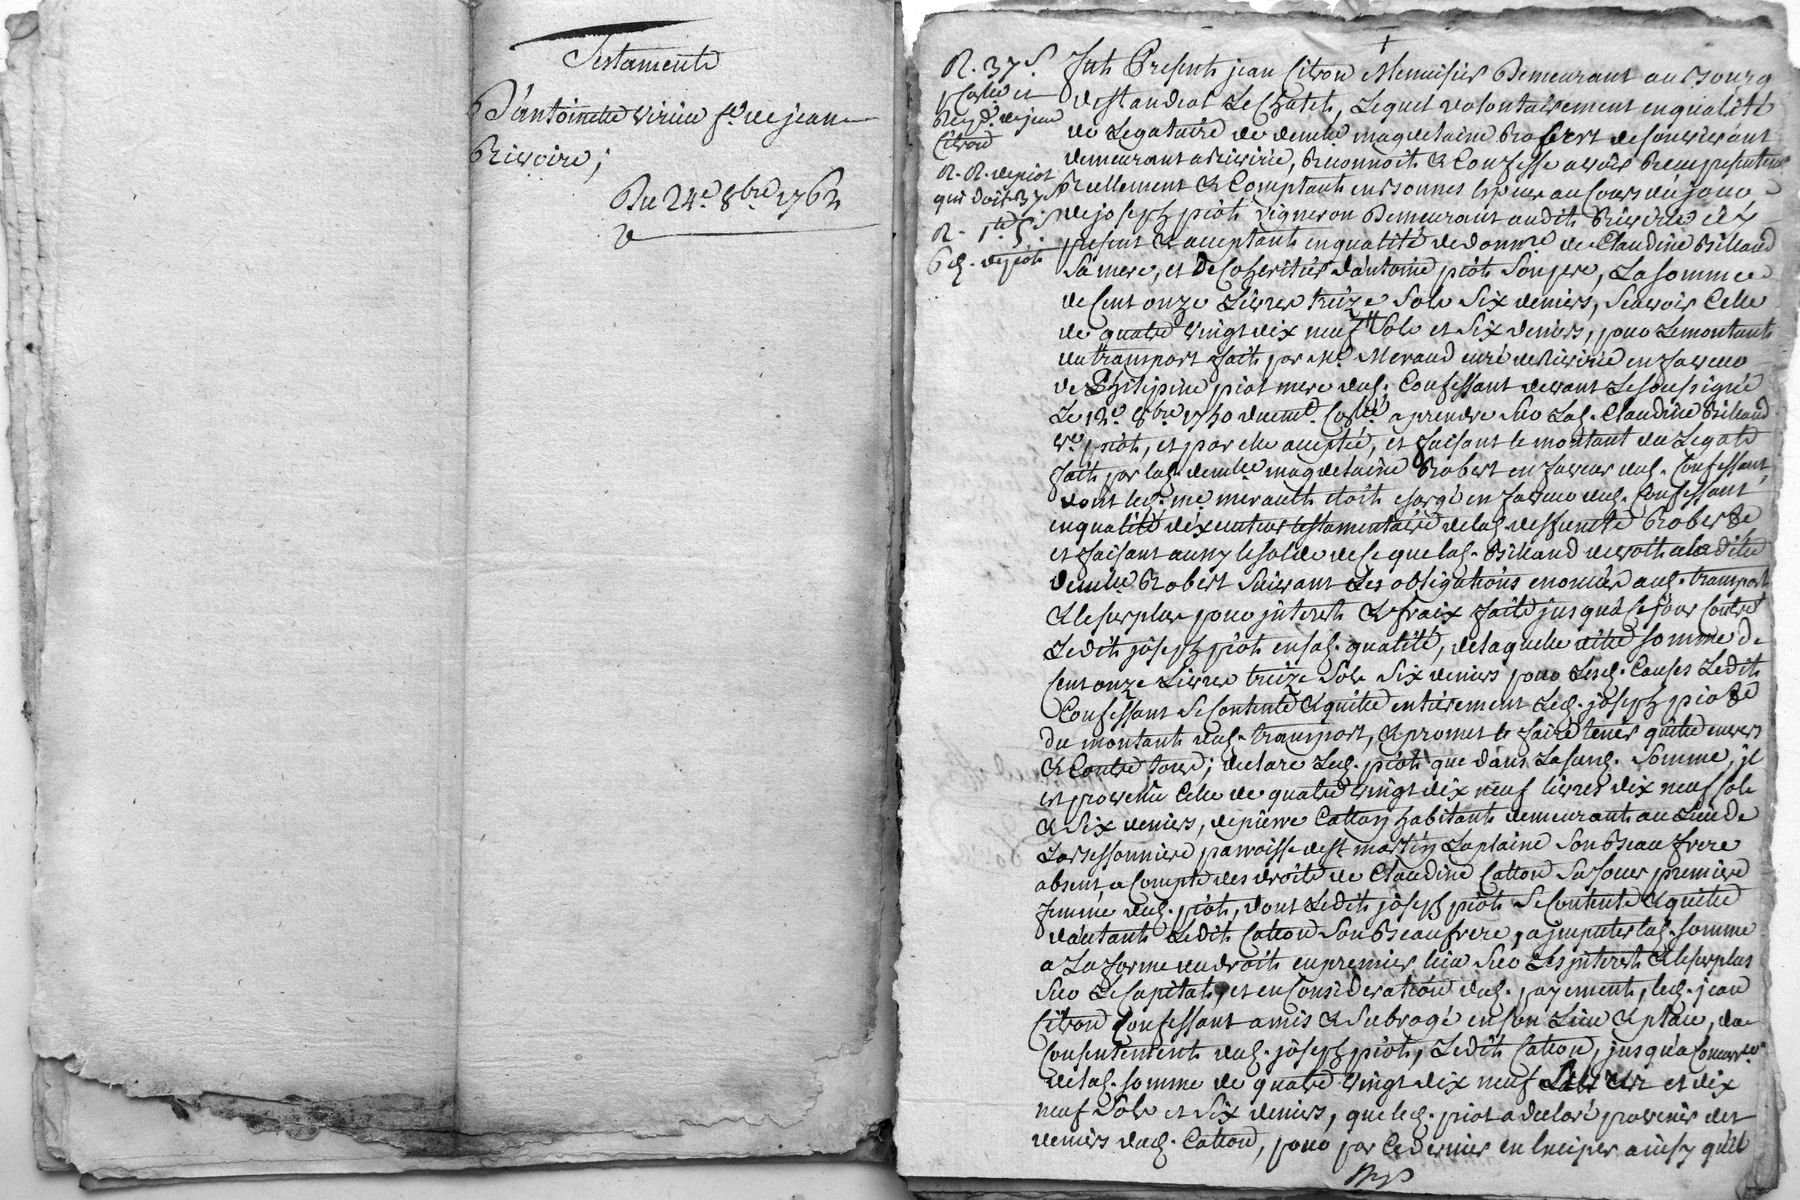 Testament
D'antoinette Viricu f.e de jean
Rivoire;
Du 24.e 8bre 1762
R. 37 s.
1 Coll.é et
Rey.d. de jean
Citron
R. R. de piot
qui doit 37 s
R. 1 tt 5 s
6 d. de piot
fut Present jean Citron Menuisier Demeurant au Bourg
de st andeol Le Chateh, Lequel volontairement en qualité
de Legataire de demlle magdelaine Robert de son vivant
demeurant a Riviric, Reconnoit & Confesse avoir Reçu presentemt
Reellement & Comptant en bonnes especes au Cours de jour
de joseph piot vigneron Demeurant audit Riviric icy
present & acceptant en qualité de donn.re de Claudine Billand
Sa mere, et De Coheritier d'antoine piot Son pere, La somme
de Cent onze Livres treize Sols Six deniers, Scavoir Celle
de quatre vingt dix neuf tt Sols et Six deniers, pour Le montant
du transport fait par Mr. Meraud curé de Riviric en faveur
de Philipine piot mere dud. Confessant devant Le Soussigné
Le 12.e 8bre 1750 duem.t Collé, a prendre Sur Lad. Claudine Billand
v.e piot, et par elle accepté, et faisant le montant du Legat
fait par lad. demlle magdelaine Robert en faveur dud. Confessant,
dont led. me. merault etoit chargé en faveur dud. Confessant
en qualité d'executeur testamentaire de lad. deffuncte Roberte
et faisant aussy le solde de Ce que lad. Billand devoit a la dite
demlle Robert Suivant Les obligations enoncées aud. transport
& le surplus pour interets & fraix faits jusqu'a Ce jour Contre
Ledit joseph piot en sad. qualité, de laquelle ditte somme de
Cent onze Livres treize Sols Six deniers pour Lesd. Causes Ledit
Confessant Se Contente & quitte entierement Led. joseph piot
du montant dud. transport, & promet le faire tenir quitte envers
& Contre tous; declare Led. piot que dans Lasusd. Somme, il
est provenu Celle de quatre vingt dix neuf livres dix neuf sols
& Six deniers, de pierre Catton habitant demeurant au Lieu de
Larsessonniere parroisse de st. martin Laplaine Son Beau frere
absent, a Compte des droits de Claudine Catton Sa Soeur premiere
femme dud. piot, dont Ledit joseph piot Se Contente & quitte
d'autant Ledit Catton Son Beau frere, a imputer lad. somme
a La forme du droit en premier lieu Sur Les interets & le surplus
Sur Le Capital, et en Consideration dud. payement, led. jean
Citron Confessant a mis & Subrogé en son Lieu & place, du
Consentement dud. joseph piot, Ledit Catton, jusqu'a Concurr.ce
de lad. somme de quatre vingt dix neuf Livres et dix
neuf Sols et Six deniers, que led. piot a declaré provenir des
deniers dud. Catton, pour par Ce dernier en huiper ainsy quil